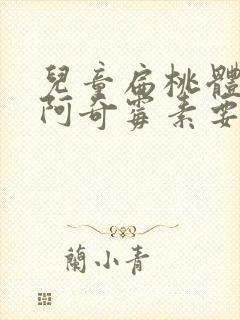 兒童扁桃體
阿奇霉素要
蘭小青